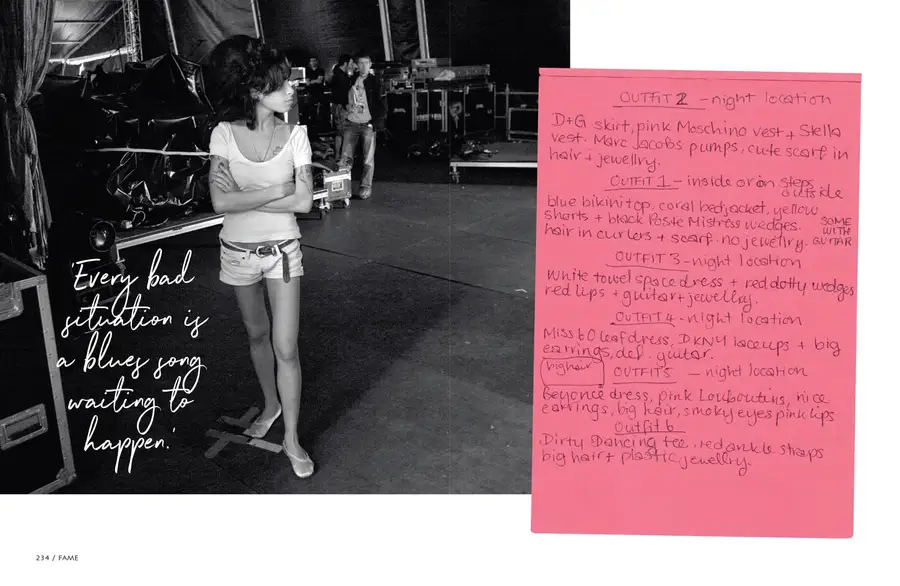 'Every bad
situation is
a blues song
waiting to
happen.'
OUTFIT 2 - night location
D+G skirt, pink Moschino vest + Stella
vest. Marc Jacobs pumps, cute scarf in
hair + jewellry.
OUTFIT 1 - inside or on steps
outside
blue bikini top, coral bedjacket, yellow
shorts + black Poste Mistress wedges.
hair in curlers + scarf. no jewellry.
SOME
WITH
GUITAR
OUTFIT 3 - night location
White towel space dress + red dotty wedges
red lips + guitar + jewellry.
OUTFIT 4 - night location
Miss 60 leaf dress, DKNY laceups + big
earrings, def. guitar.
big hair
OUTFIT 5 - night location
Beyoncé dress, pink Louboutins, nice
earrings, big hair, smoky eyes pink lips
Outfit 6
Dirty Dancing tee. red ankle straps
big hair + plastic jewellry.
234 / FAME